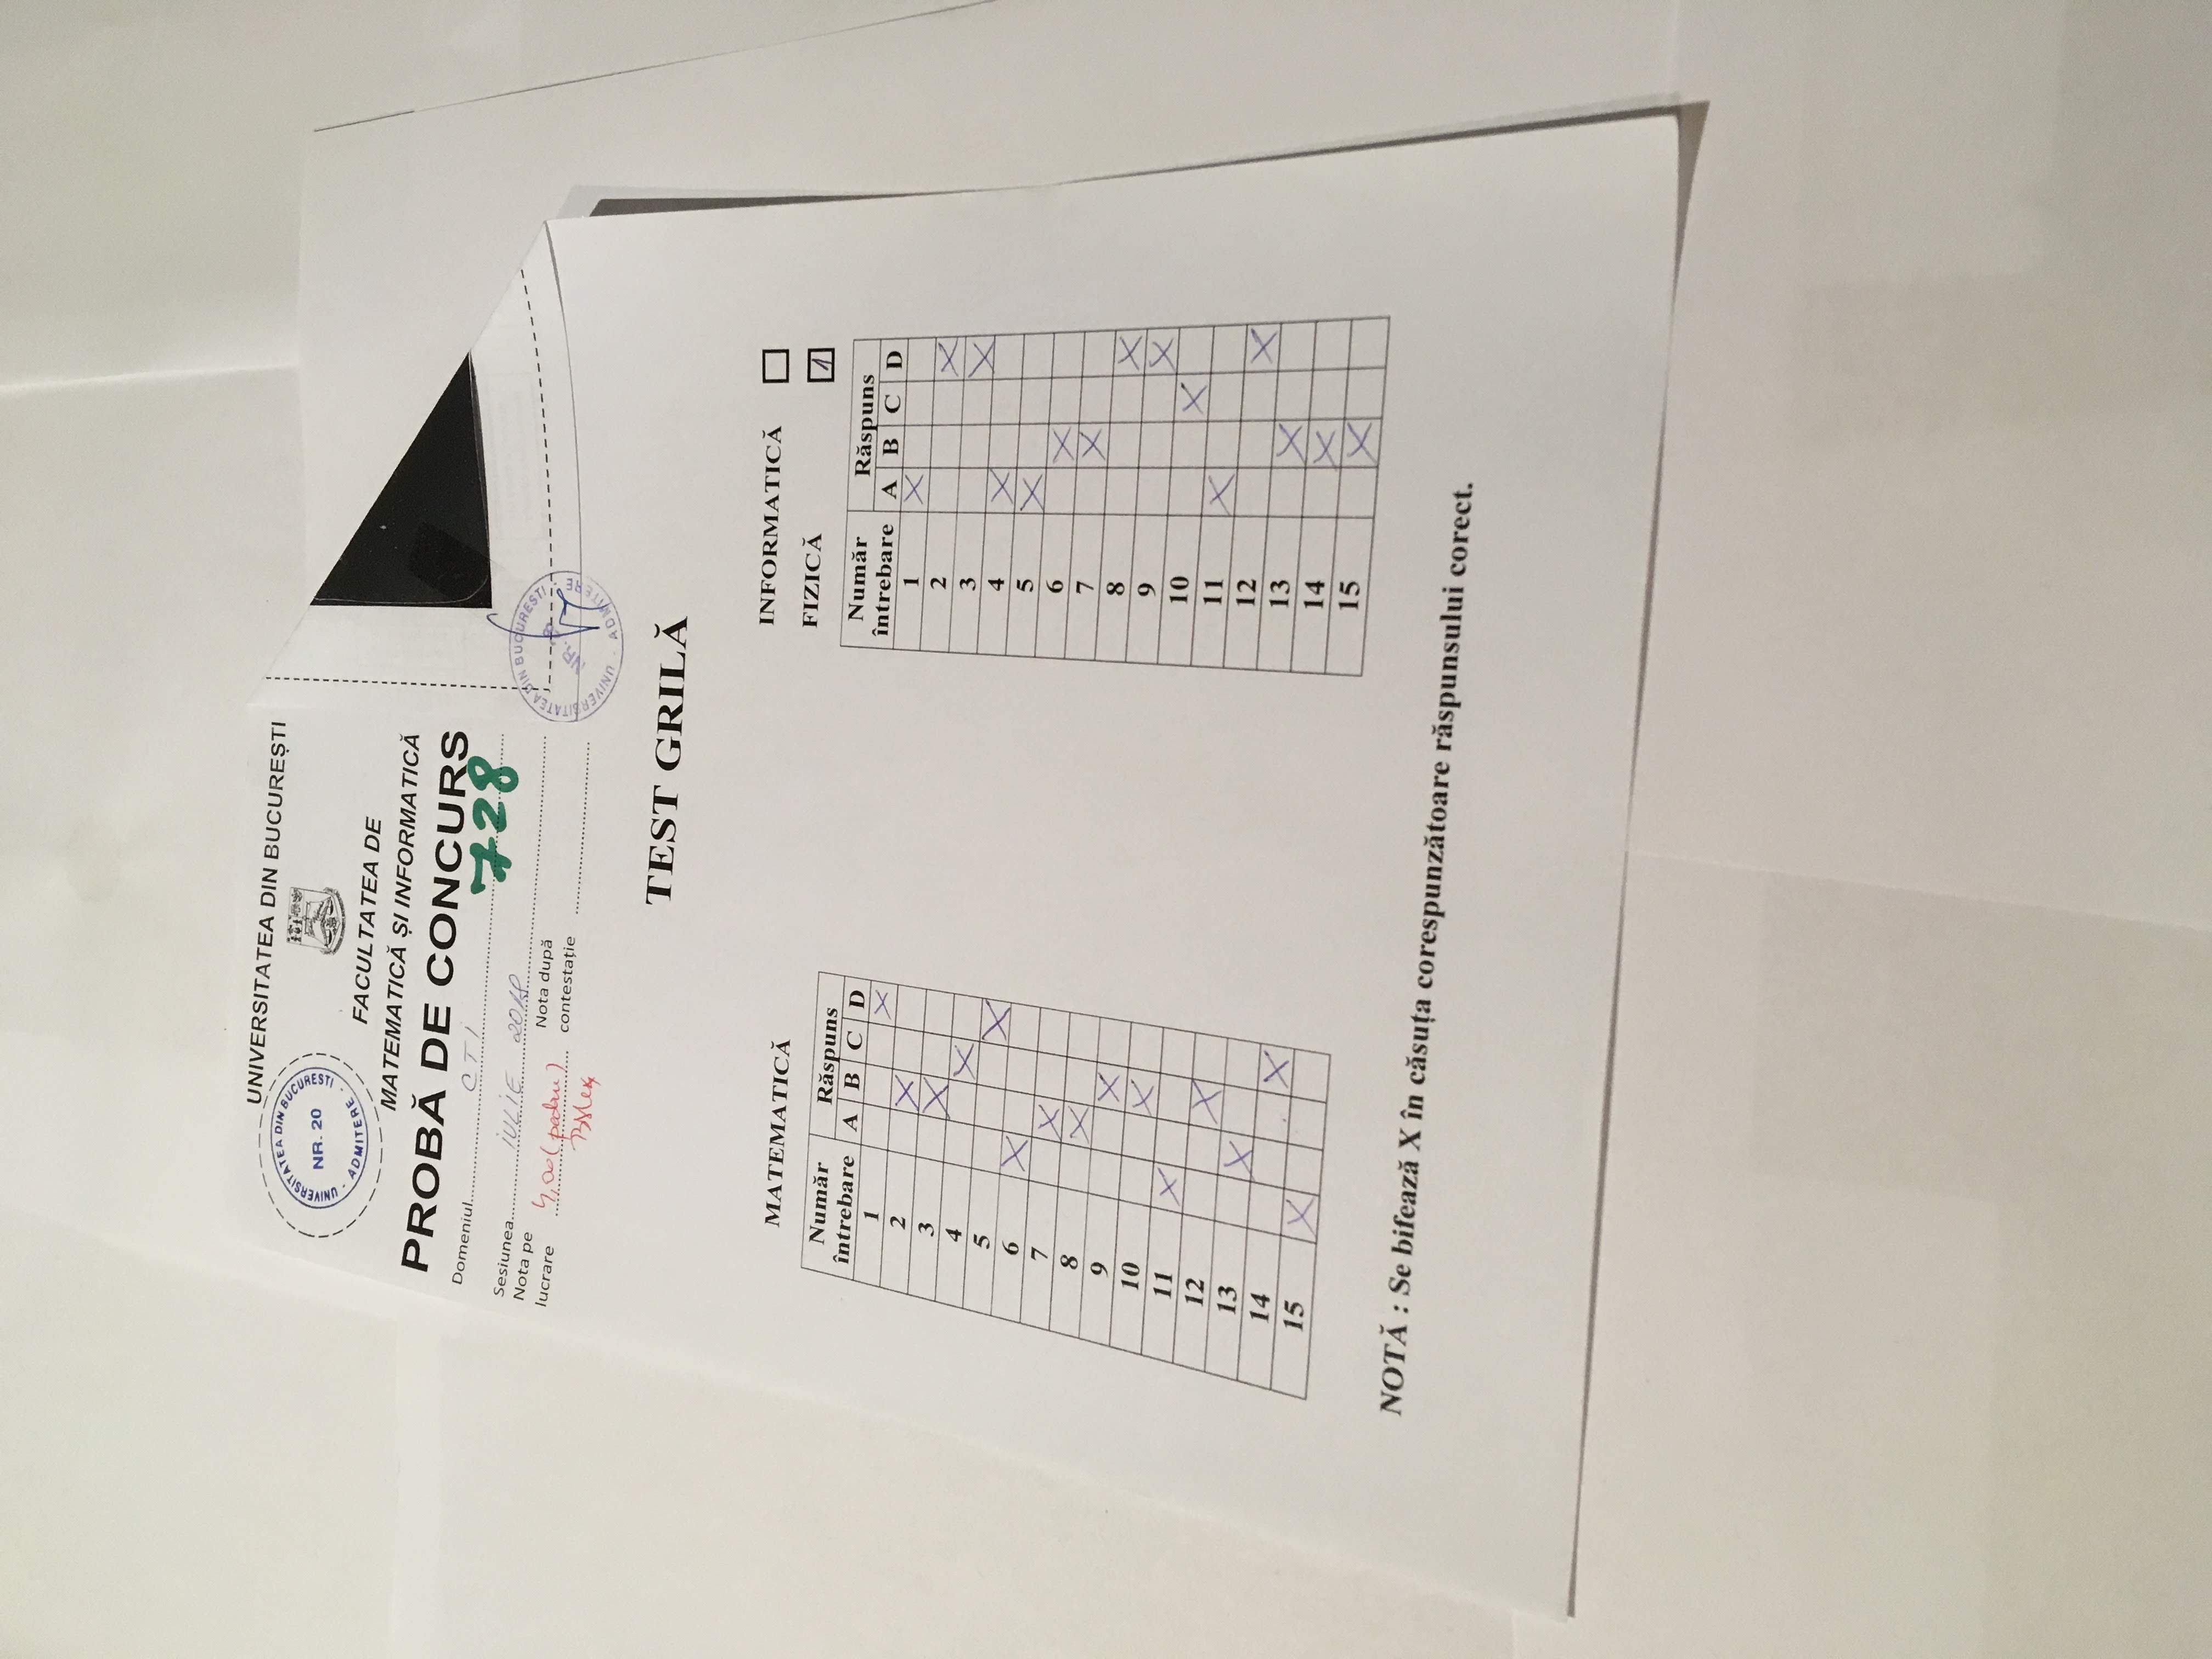 UNIVERSITATEA DIN BUCUREȘTI
UNIVERSITATEA DIN BUCUREȘTI
NR. 20
- ADMITERE -
FACULTATEA DE
MATEMATICĂ ȘI INFORMATICĂ
PROBĂ DE CONCURS
Domeniul CTI
728
Sesiunea IULIE 2018
Nota pe
lucrare 4,00
Nota după
contestație
UNIVERSITATEA DIN BUCUREȘTI
NR.
- ADMITERE -
TEST GRILĂ
MATEMATICĂ
Număr
întrebare
Răspuns
A B C D
1 X
2 X
3 X
4 X
5 X
6 X
7 X
8 X
9 X
10 X
11 X
12 X
13 X
14 X
15 X
INFORMATICĂ
FIZICĂ 1
Număr
întrebare
Răspuns
A B C D
1 X
2 X
3 X
4 X
5 X
6 X
7 X
8 X
9 X
10 X
11 X
12 X
13 X
14 X
15 X
NOTĂ : Se bifează X în căsuța corespunzătoare răspunsului corect.